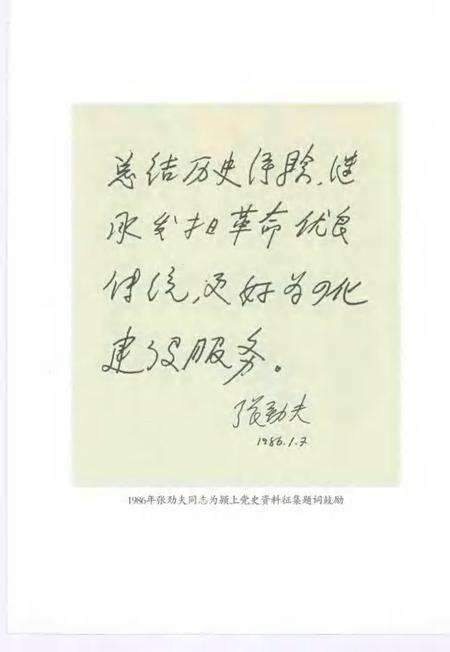 总结历史经验,继
承发扬革命优良
传统,更好为四化
建设服务。
张劲夫
1986.1.2
1986年张劲夫同志为颍上党史资料征集题词鼓励